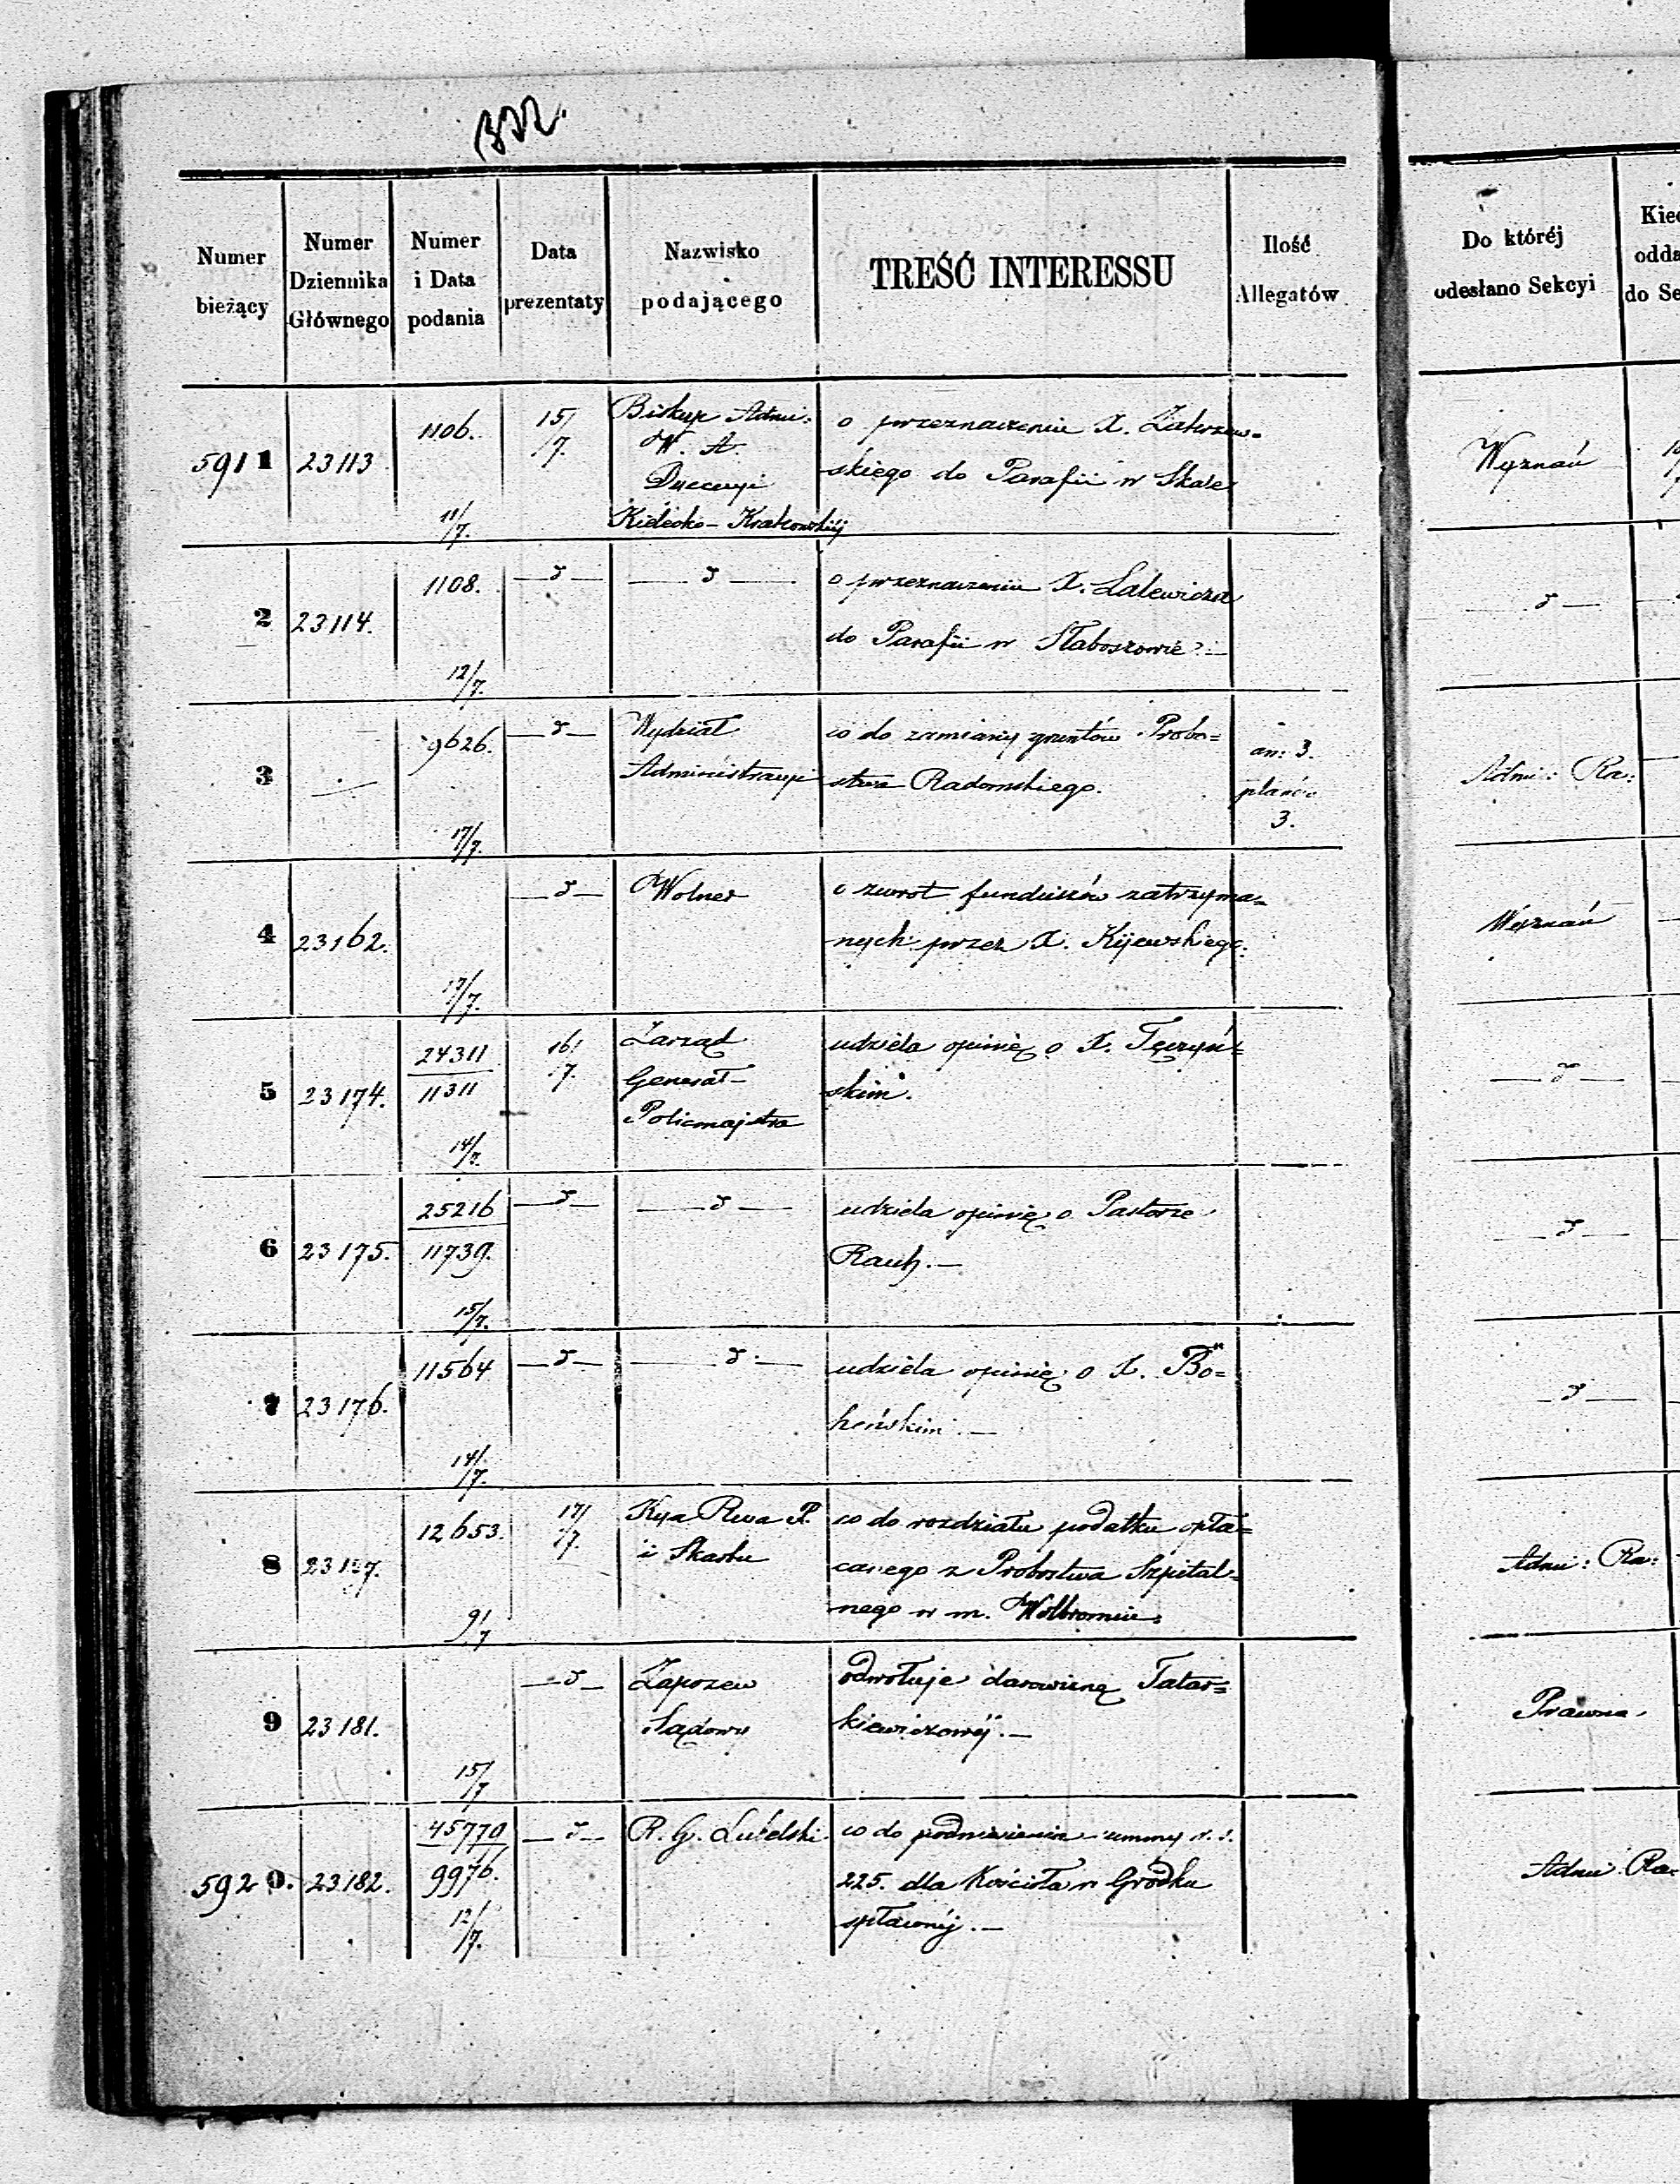 322.
Numer bieżący
Numer Dziennika Głównego
Numer i Data podania
Data prezentaty
Nazwisko podającego
TREŚĆ INTERESSU
Ilość Allegatów
Do któréj odesłano Sekcyi
5911 23113 1106. 11/7. 15/7. Biskup Admi: o przeznaczenie X. Zakrzew- Wyznań
W. A. skiego do Parafii w Skale
Dyecezyi
Kielecko-Krakowskiéj
2 23114. 1108. 12/7. —d— —d— o przeznaczeniu X. Lalewicza —d—
do Parafii w Słaboszowie.—
3 9626. 17/7. —d— Wydział co do zamiany gruntów Probo= an: 3. Admi: Ra:
Administracyi stwa Radomskiego. planów
3.
4 23162. 17/7. —d— Wolner o zwrot funduszów zatrzyma= Wyznań
nych przez X. Kijewskiego.
5 23174. 24311 11311 14/7. 16/7. Zarząd udziela opinię o X. Tęczyń= —d—
Generał- skim.
Policmajstra
6 23175. 25216 11739. 15/7. —d— —d— udziela opinię o Pastorze —d—
Rauh.—
7 23176. 11564 14/7. —d— —d— udziela opinię o X. Bo= —d—
heńskim.—
8 12653. 9/7 17/7. Kya Rwa P. co do rozdziału podatku opła= Admi: Ra:
i Skarbu canego z Probostwa Szpital=
nego w m. Wolbromiu.
9 23181. 15/7 —d— Zapozew odwołuje darowiznę Tatar= Prawna.
Sądowy kiewiczowéj.—
5920. 23182. 45779 9976. 12/7. —d— R. G. Lubelski co do podniesienia summy r. s. Admi: Ra:
225. dla Kościoła w Gródku
spłaconéj.—